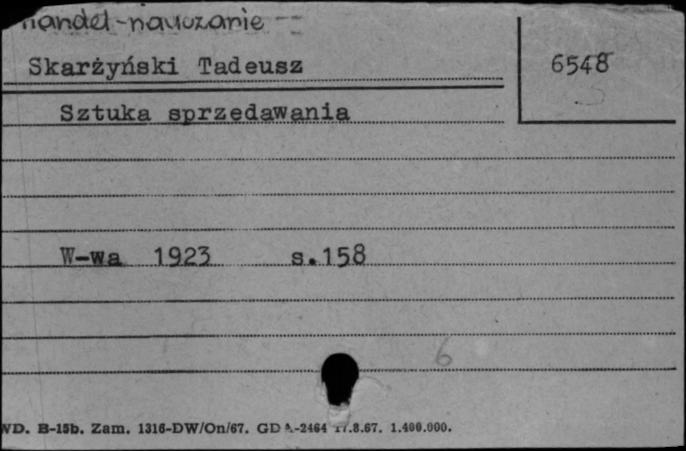 handel-nauczanie
Skarżyński Tadeusz
6548
Sztuka sprzedawania
W-wa 1923 s.158
6
WD. B-15b. Zam. 1316-DW/On/67. GD -2464 17.8.67. 1.400.000.